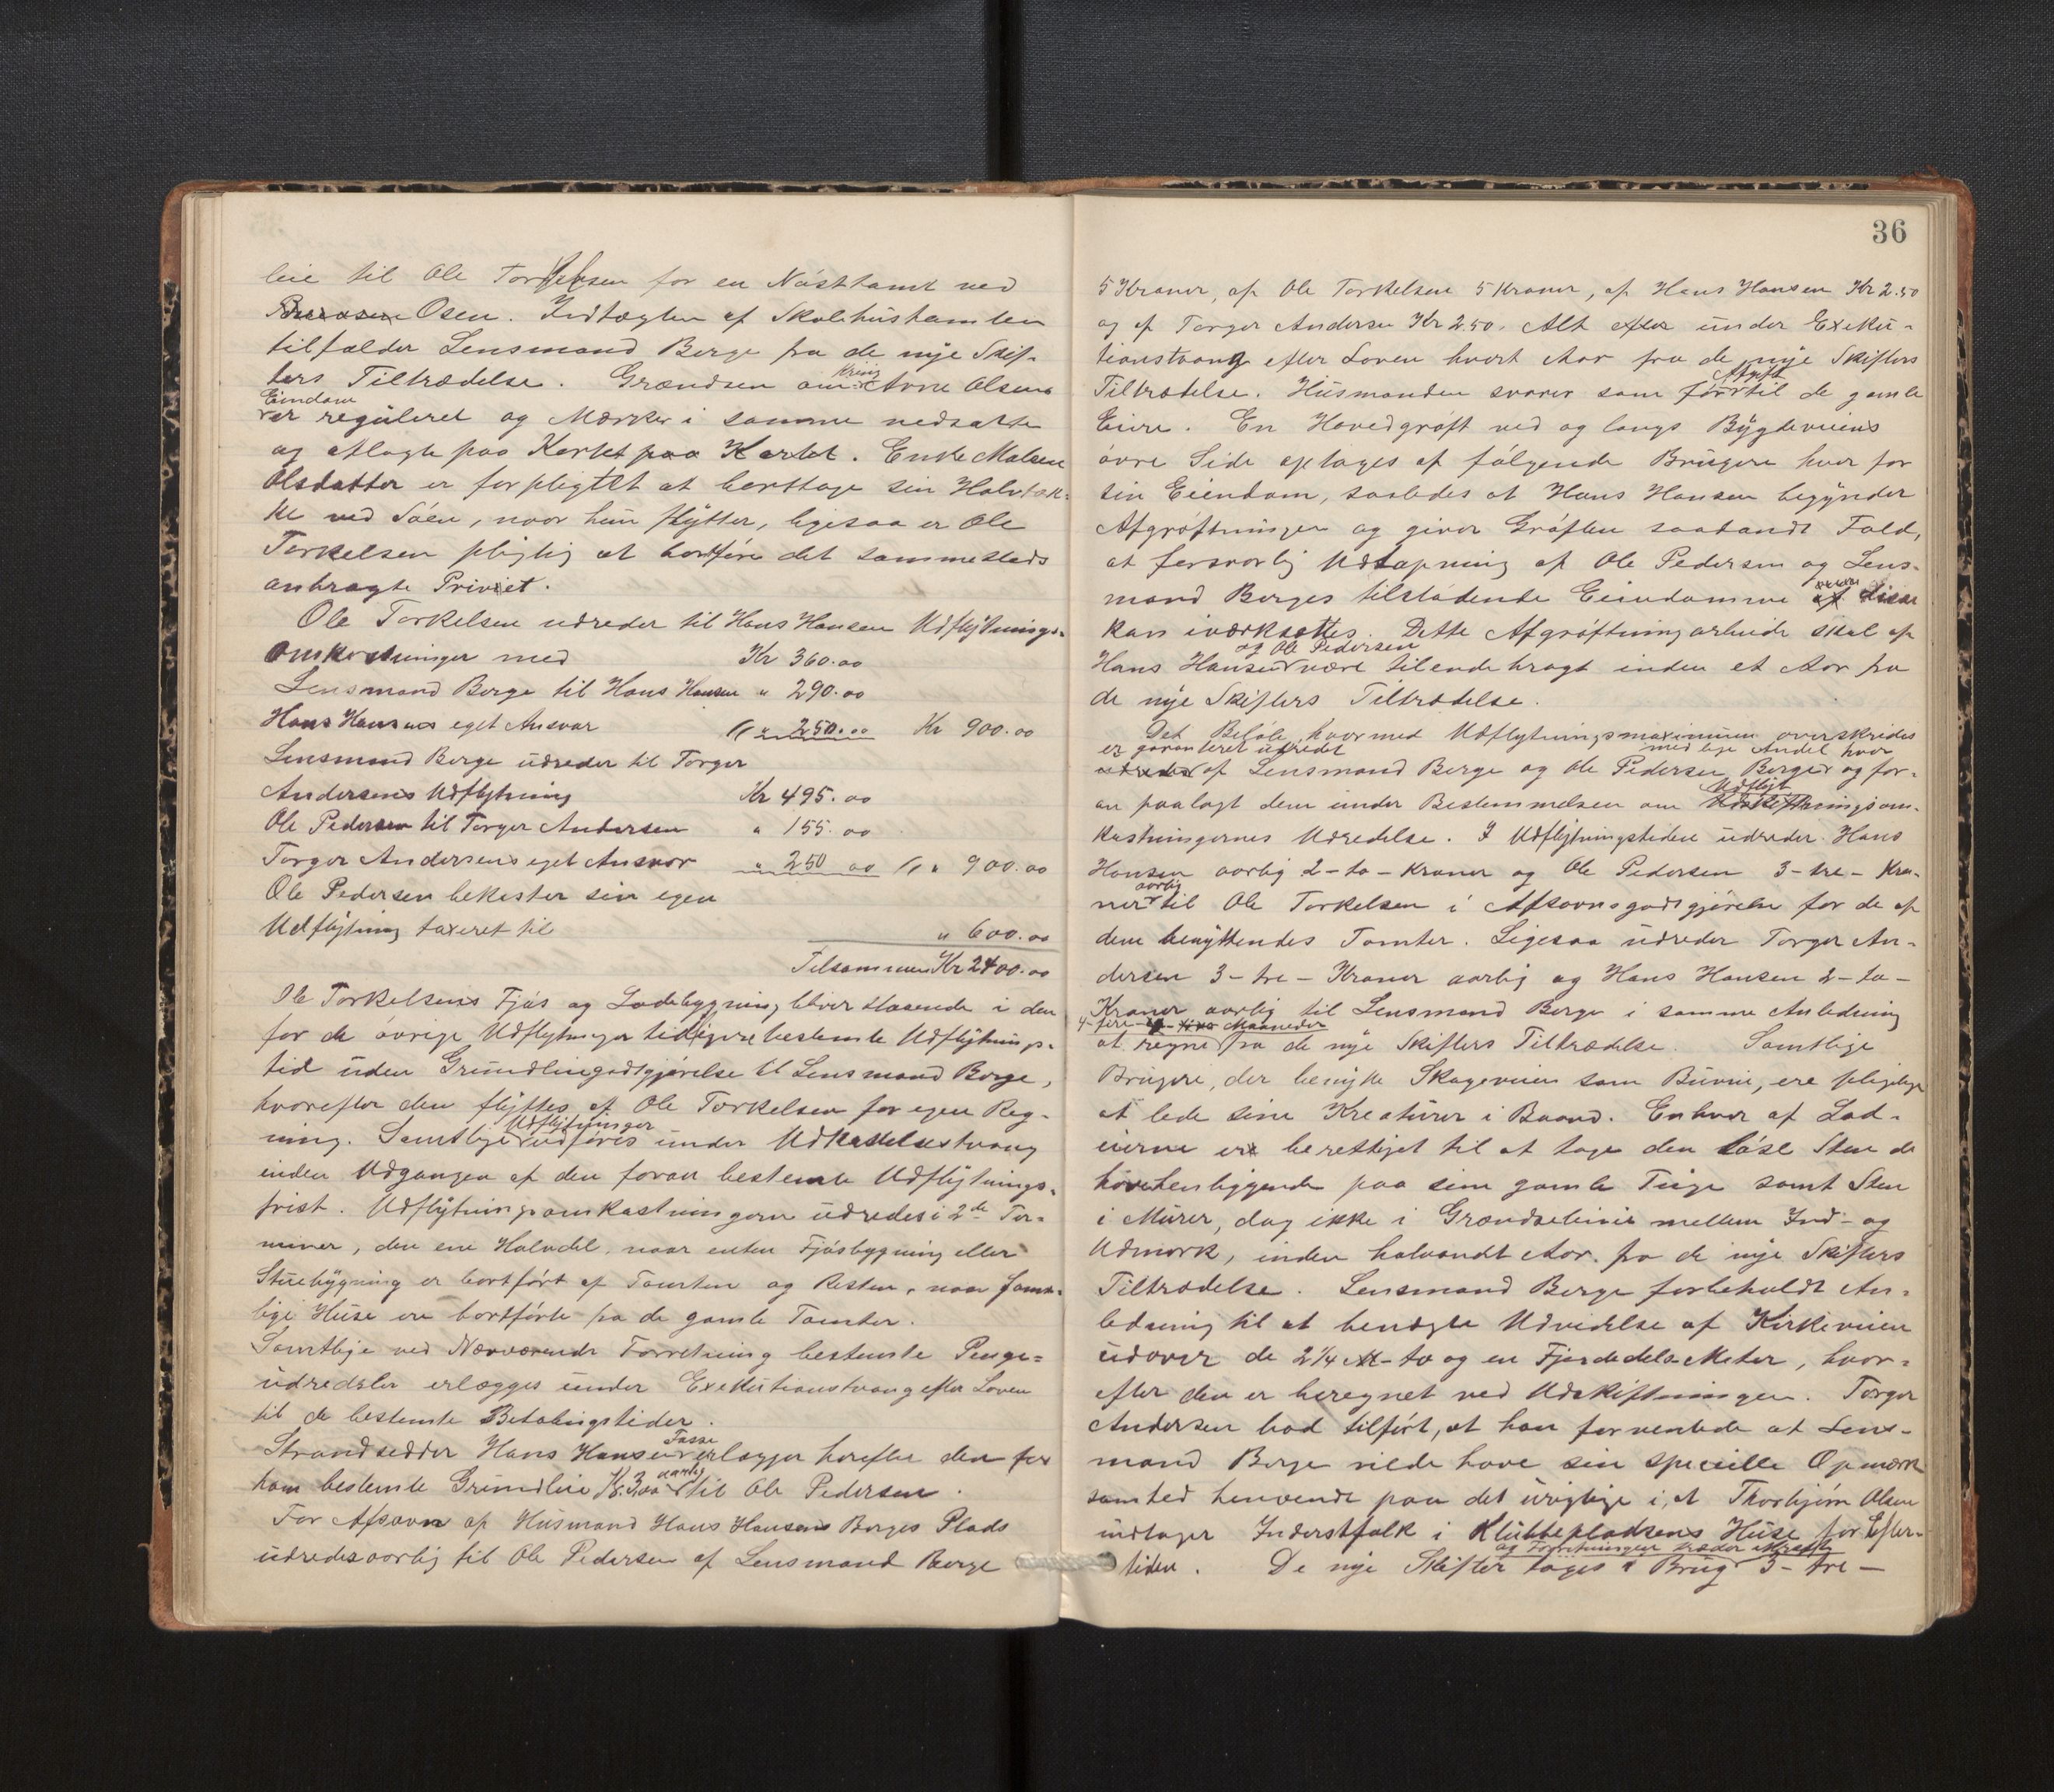 leie til Ole Torkelsen for en Nösttomt ved
Osen. Indtægten af Skolehustomten
tilfalder Lensmand Berge fra de nye Skif-
ters Tiltrædelse. Grændsen om Kring Arne Olsens
Eiendom
er reguleret og Mærker i samme nedsatte
og aflagte paa Kartet paa Kartet. Enke Malene
Olsdatter er forpligtet at borttage sin
ved Söen, naar hun flytter, ligesaa er Ole
Torkelsen pligtig at bortföre det sammesteds
anbragte Privet.
Ole Torkelsen udreder til Hans Hansen Udflytnings-
omkostninger med Kr 360.00
Lensmand Berge til Hans Hansen " 290.00
Hans Hansens eget Ansvar " 250.00 Kr 900.00
Lensmand Berge udreder til Torger
Andersens Udflytning Kr 495.00
Ole Pedersen til Torger Andersen " 155.00
Torger Andersens eget Ansvar " 250 00 " 900.00
Ole Pedersen bekoster sin egen
Udflytning taxeret til " 600.00
Tilsammen Kr 2400.00
Ole Torkelsens Fjös og Ladebygning bliver staaende i den
for de övrige Udflytninger tidligere bestemte Udflytnings-
tid uden Grundleiegodtgjörelse til Lensmand Berge,
hvorefter den flyttes af Ole Torkelsen for egen Reg-
Udflytninger
ning. Samtlige udföres under Udkastelsestvang
inden Udgangen af den foran bestemte Udflytnings-
frist. Udflytningsomkostningerne udredes i 2de Ter-
miner, den ene Halvdel, naar enten Fjösbygning eller
Stuebygning er bortfört af Tomten og Resten, naar samt-
lige Huse ere bortförte fra de gamle Tomter.
Samtlige ved Nærværende Forretning bestemte Penge-
udredsler erlægges under Exekutionstvang efter Loven
til de bestemte Betalingstider.
Fosse
Strandsidder Hans Hansen erlægger herefter den for
aarlig
ham bestemte Grundleie Kr. 3.00 til Ole Pedersen.
For Afsavn af Husmand Hans Hansens Berges Plads
udredes aarlig til Ole Pedersen af Lensmand Berge
36
5 Kroner, af Ole Torkelsen 5 Kroner, af Hans Hansen Kr 2.50
og af Torger Andersen Kr 2.50. Alt efter under Exeku-
tionstvang efter Loven hvert Aar fra de nye Skifters
Afgift
Tiltrædelse. Husmanden svarer som för til de gamle
Eiere. En Hovedgröft ved og langs Bygdeveiens
övre Side optages af fölgende Brugere hver for
sin Eiendom, saaledes at Hans Hansen begynder
Afgröftningen og giver Gröften saadandt Fald,
at forsvarlig Udtapning af Ole Pedersen og Lens-
mand Berges tilstödende Eiendomme
kan iværksættes. Dette Afgröftningarbeide skal af
og Ole Pedersen
Hans Hansen være tilendebragt inden et Aar fra
de nye Skifters Tiltrædelse.
Det Belöb, hvormed Udflytningsmaximum overskrides
er garanteret udredet med lige Andel hver
udredes af Lensmand Berge og Ole Pedersen Berge og for-
Udflyt
an paalagt dem under Bestemmelsen om Udskiftningsom-
kostningernes Udredelse. I Udflytningstiden udreder Hans
Hansen aarlig 2-to-Kroner og Ole Pedersen 3-tre-Kro-
aarlig
ner til Ole Torkelsen i Afsavnsgodtgjörelse for de af
dem benyttendes Tomter. Ligesaa udreder Torger An-
dersen 3-tre-Kroner aarlig og Hans Hansen 2-to-
Kroner aarlig til Lensmand Berge i samme Anledning
4-fire- Maaneder
at regne fra de nye Skifters Tiltrædelse. Samtlige
Brugere, der benytte Skogeveien som Buvei, ere pligtige
at lede sine Kreaturer i Baand. Enhver af Lod-
eierne er berettiget til at tage den löse Sten de
have henliggende paa sine gamle Teige samt Sten
i Murer, dog ikke i Grændselinie mellem Ind- og
Udmark, inden halvandt Aar fra de nye Skifters
Tiltrædelse. Lensmand Berge forbeholdt An-
ledning til at benægte Udvidelse af Kirkeveien
udover de 2¼ M-to og en Fjerdedels Meter, hvor-
efter den er beregnet ved Udskiftningen. Torger
Andersen bad tilfört, at han forventede at Lens-
mand Berge vilde have sin specielle Opmærk
somhed henvendt paa det urigtige i, at Thorbjörn Olsen
indtager Inderstfolk i Klubbepladsens Huse for Efter-
og Forretningen træder ikraft
tiden. De nye Skifter tages i Brug 3-tre-